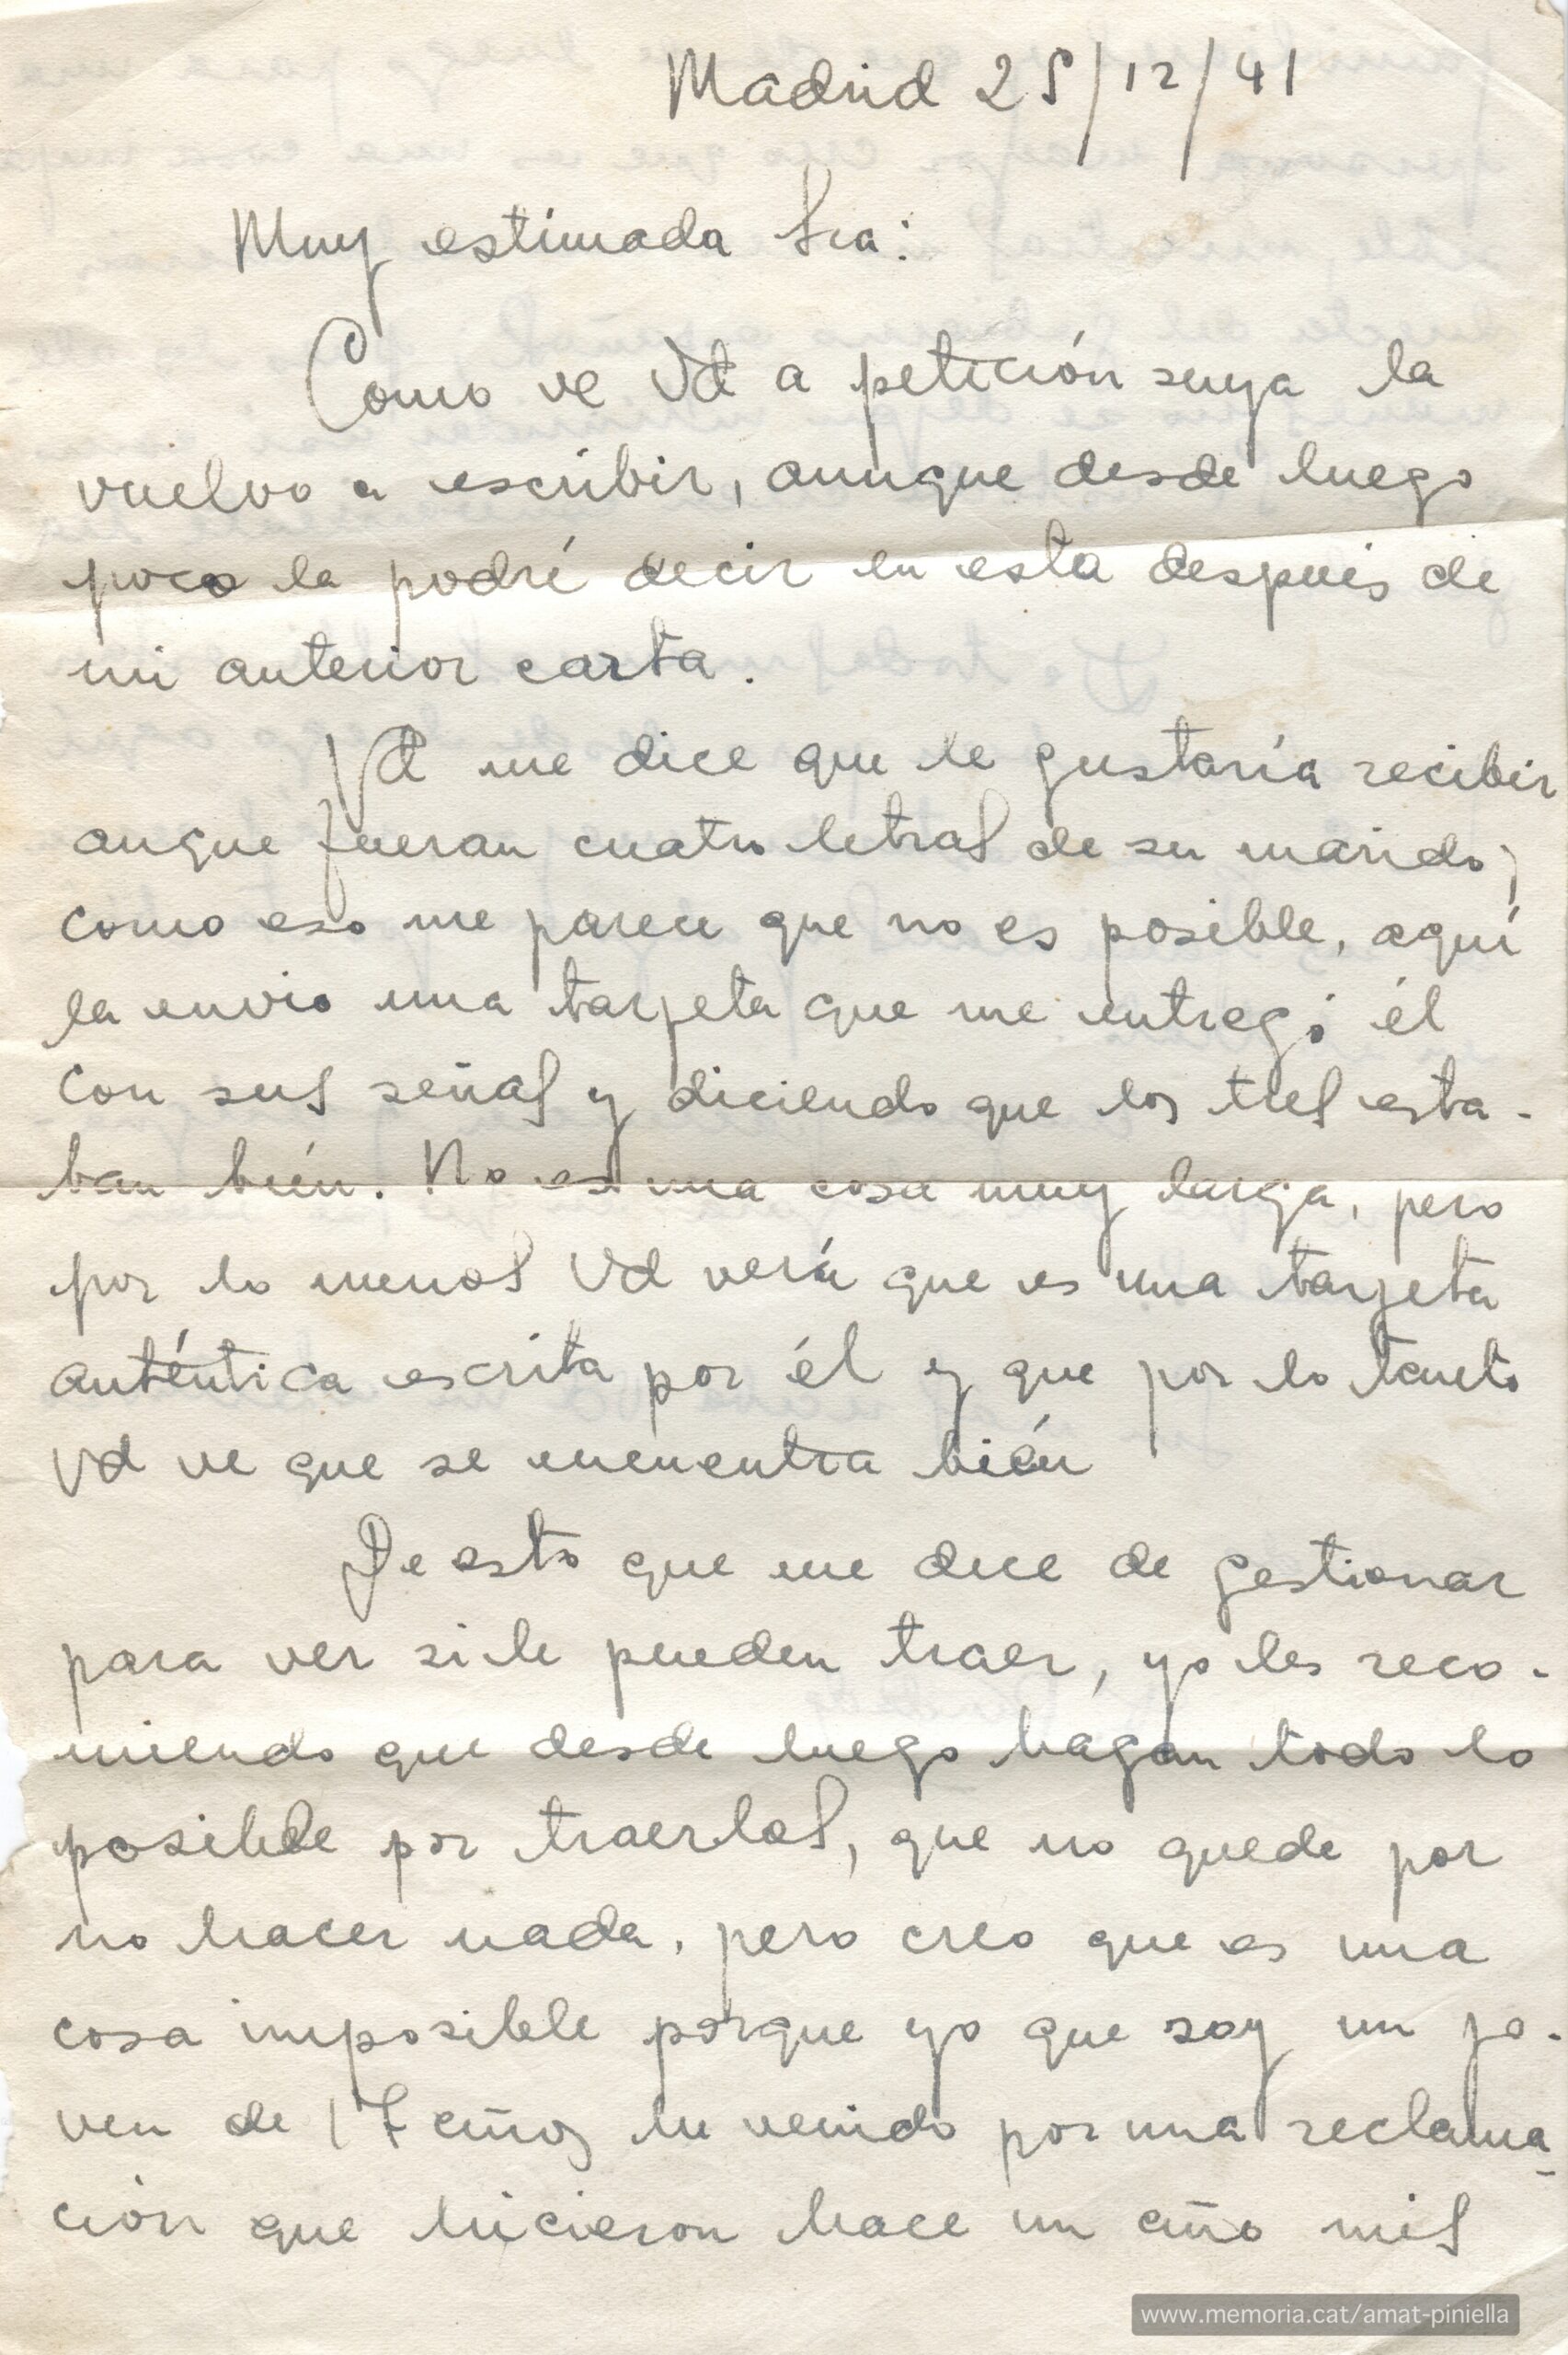 Madrid 25/12/41
Muy estimada Sra:
Como ve Vd a petición suya la
vuelvo a escribir, aunque desde luego
poco la podré decir en esta después de
mi anterior carta.
Vd me dice que le gustaría recibir
aunque fueran cuatro letras de su marido;
como eso me parece que no es posible, aquí
la envio una tarjeta que me entregó él
con sus señas y diciendo que los tres esta-
ban bién. No es una cosa muy larga, pero
por lo menos Vd verá que es una tarjeta
auténtica escrita por él y que por lo tanto
Vd ve que se encuentra bién
De esto que me dice de gestionar
para ver si le pueden traer, yo les reco-
miendo que desde luego hagan todo lo
posible por traerlos, que no quede por
no hacer nada, pero creo que es una
cosa imposible porque yo que soy un jo-
ven de 17 años he venido por una reclama-
ción que hicieron hace un año mis
www.memoria.cat/amat-piniella